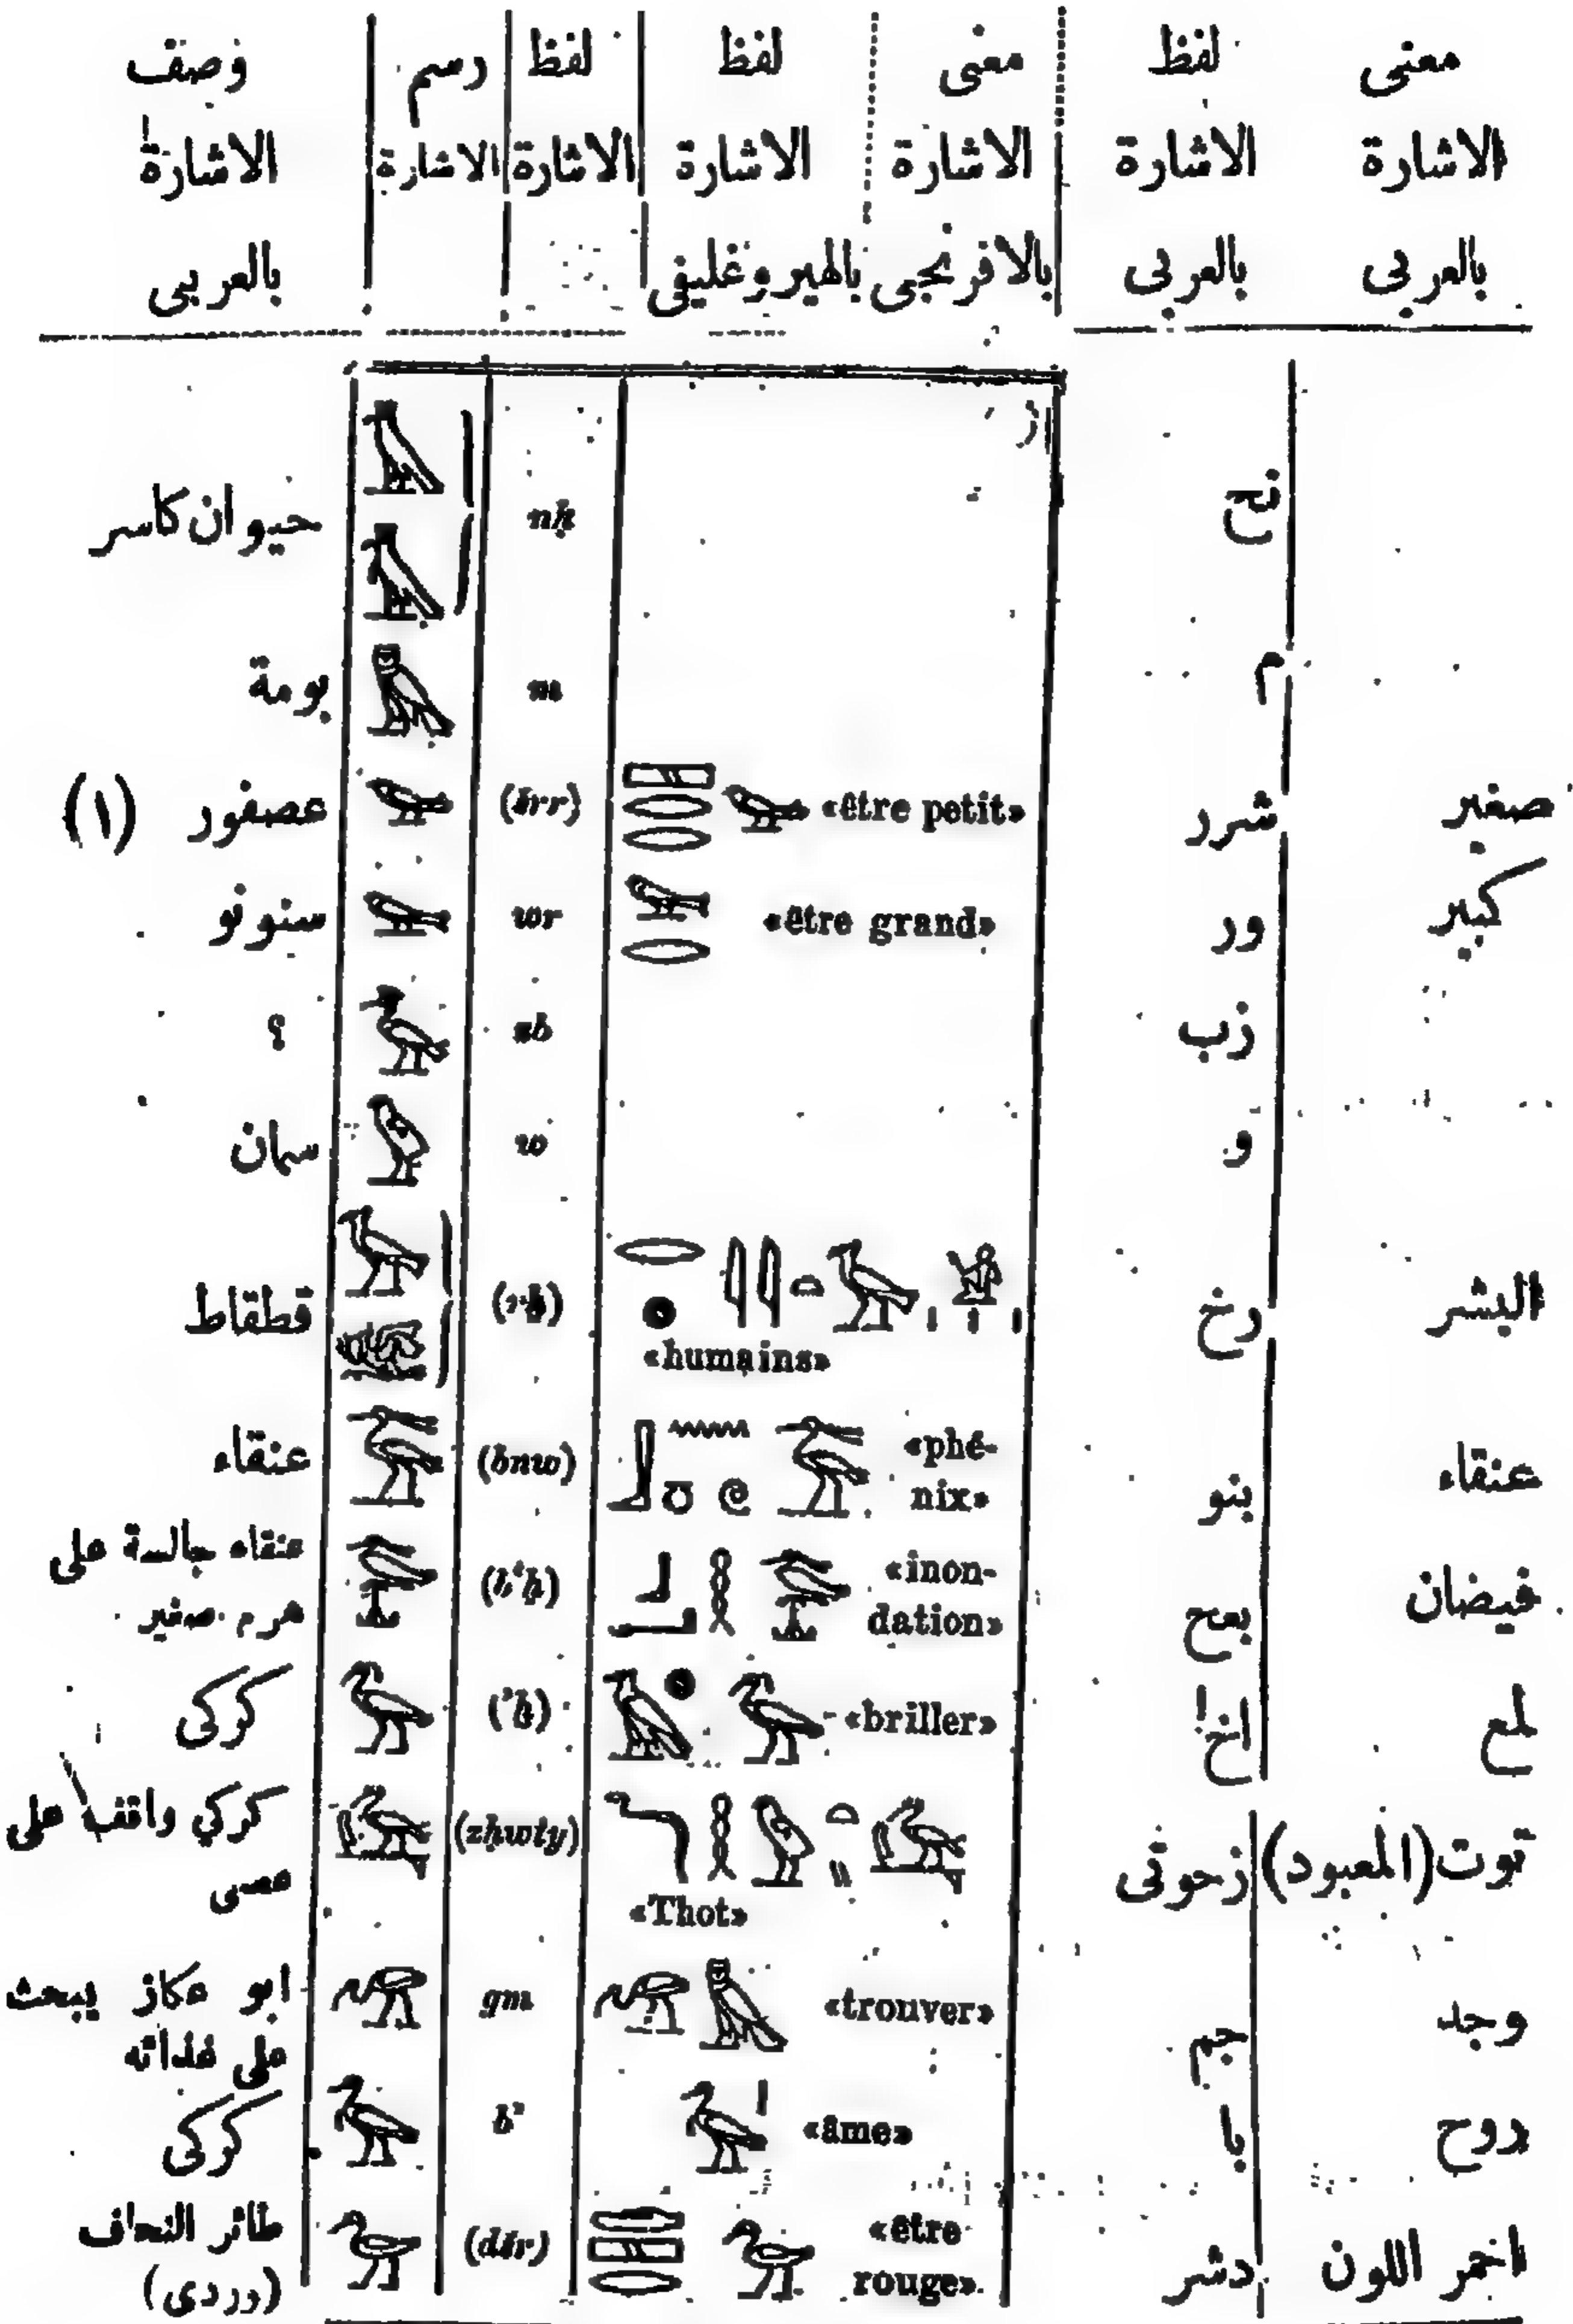 معنى لفظ معنى لفظ لفظ رسم وصف
الاشارة الاشارة الاشارة الاشارة الاشارة الاشارة الاشارة
بالعربى بالعربى بالافرنجى بالهيروغليفى بالعربى
نح nḥ حيوان كاسر
م m بومة
صغير شرر «être petit» (šrr) عصفور (١)
كبير ور «être grand» wr سنونو
زب zb ؟
و w سمان
البشر رخ «humains» (rḫ) قطقاط
عنقاء بنو «phé-nix» (bnw) عنقاء
فيضان بعح «inon-dation» (bʿḥ) عنقاء جالسة على
هرم صغير
لمع اخ «briller» (ʾḫ) كركى
توت (المعبود) زحوتى «Thot» (zḥwty) كركي واقف على
عصى
وجد جم «trouver» gm ابو عكاز يبحث
على غذائه
روح با «âme» bʾ كركى
احمر اللون دشر «être rouge» (dšr) طائر النحاف
(وردى)